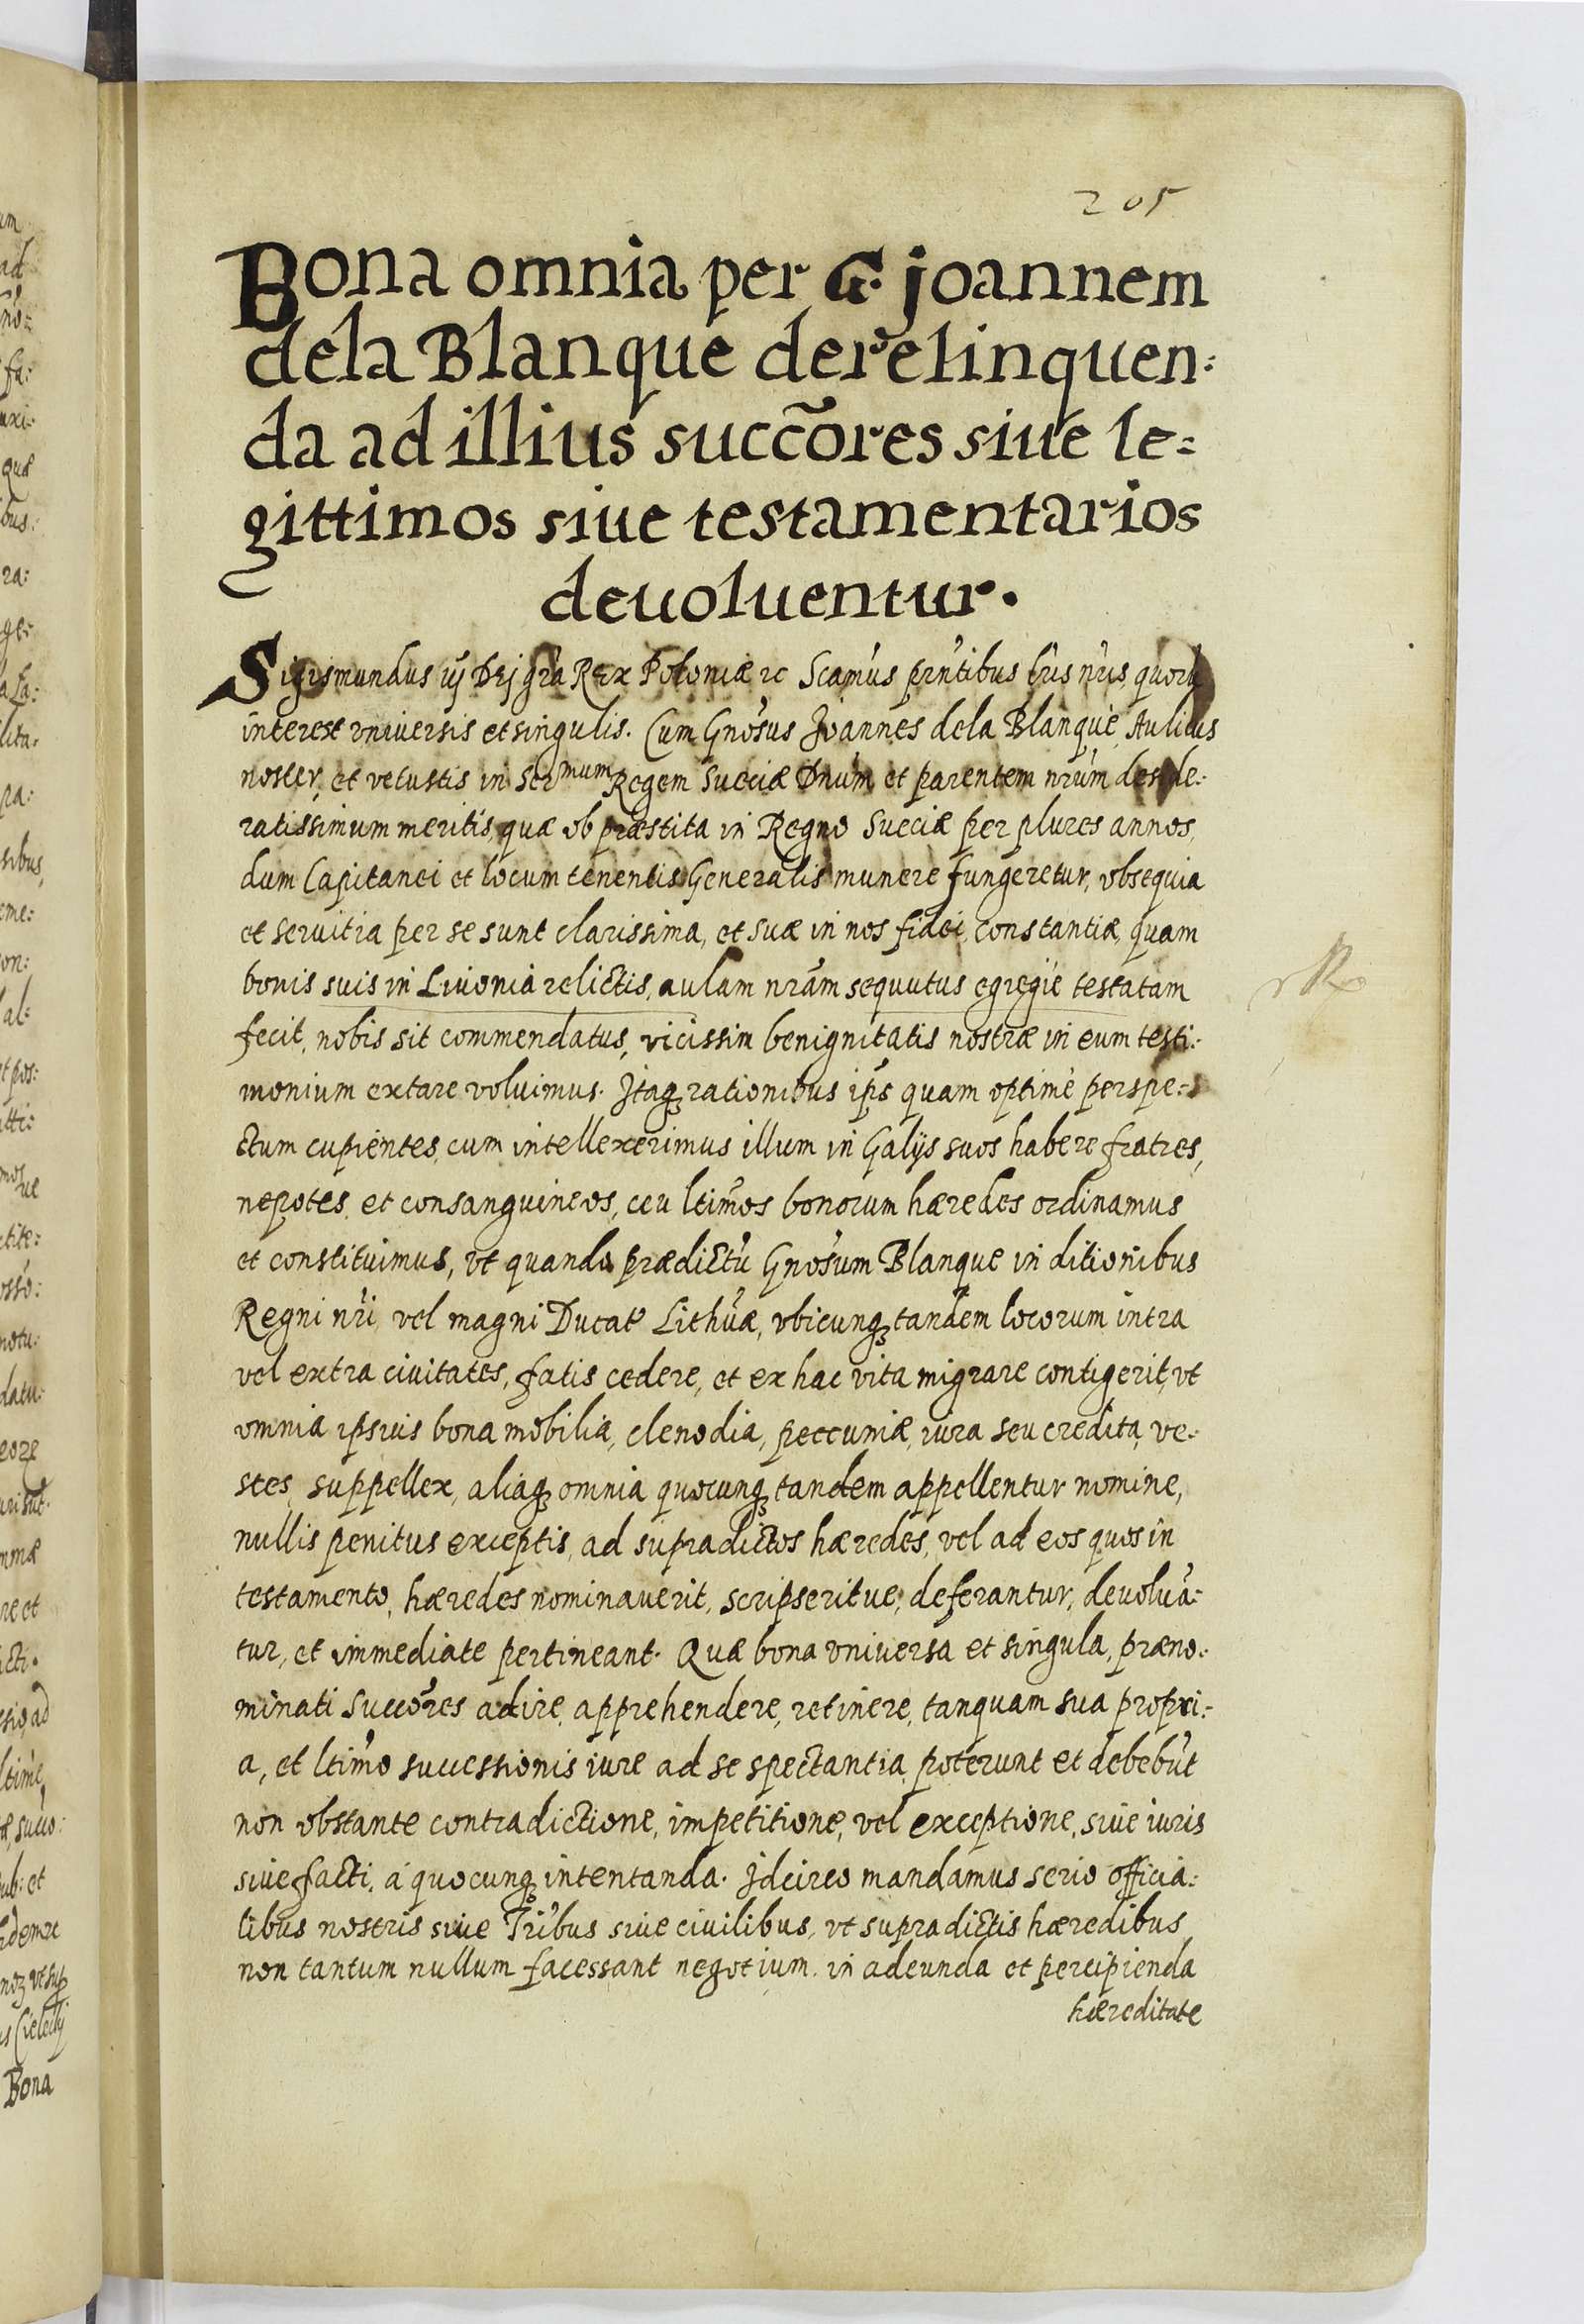 205
Bona omnia per G. Joannem
dela Blanque derelinquen:
da ad illius succõres siue le=
gittimos siue testamentarios
deuoluentur.
Sigismundus iij Dej gra Rex Poloniæ rc Scamus prntibus lris nris, quoru
interest vniuersis et singulis. Cum Gnosus Joannes dela Blanque, Aulicus
noster, et vetustis in Sermum Regem Sueciæ Dnum et parentem nrum deside:
ratissimum meritis, quæ ob præstita in Regno Sueciæ per plures annos,
dum Capitanei et locum tenentis Generalis munere fungeretur, obsequia
et seruitia per se sunt clarissima, et suæ in nos fidei, constantiæ, quam
bonis suis in Liuonia relictis, aulam nram sequutus egregie testatam
fecit, nobis sit commendatus, vicissim benignitatis nostræ in eum testi:
monium extare voluimus. Itaq rationibus ips quam optime perspe:
ctum cupientes, cum intellexerimus illum in Galijs suos habere fratres,
nepotes, et consanguineos, ceu ltimos bonorum hæredes ordinamus
et constituimus, vt quando prædictu Gnosum Blanque in ditionibus
Regni nri, vel magni Ducat Lithuæ, vbicunq tandem locorum intra
vel extra ciuitates, fatis cedere, et ex hac vita migrare contigerit, vt
omnia ipsius bona mobilia, clenodia, peccuniæ, iura seu credita, ve:
stes, suppellex, aliaq omnia quocunq tandem appellentur nomine,
nullis penitus exceptis, ad supradictos hæredes, vel ad eos quos in
testamento, hæredes nominauerit, scripseritue, deferantur, deuolua:
tur, et immediate pertineant. Quæ bona vniuersa et singula, præno:
minati Succores adire, apprehendere, retinere, tanquam sua propri:
a, et ltimo successionis iure ad se spectantia, poterunt et debebut
non obstante contradictione, impetitione, vel exceptione, siue iuris
siue facti, a quocunq intentanda. Idcirco mandamus serio officia:
libus nostris siue Tribus siue ciuilibus, vt supradictis hæredibus
non tantum nullum facessant negotium. in adeunda et percipienda
hæreditate